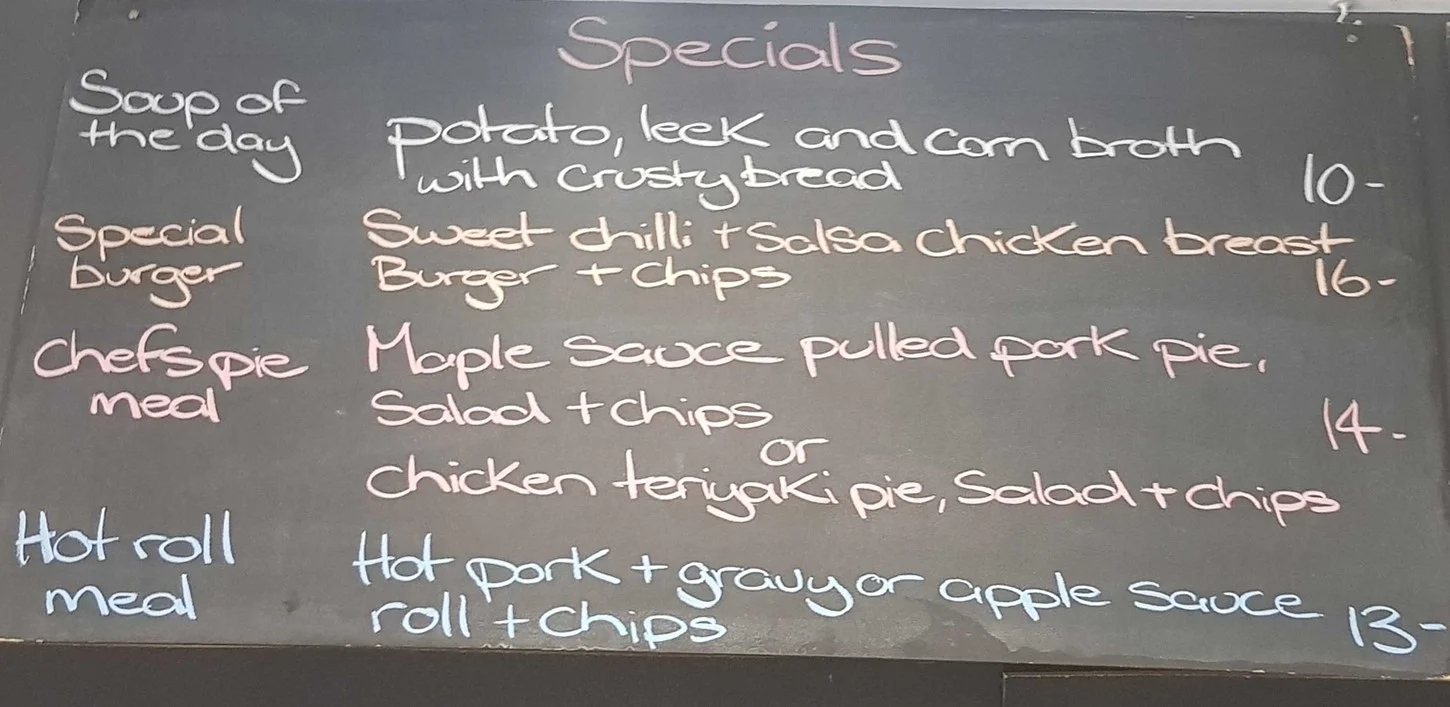 Specials
Soup of
the day
potato, leek and corn broth
with crusty bread 10-
Special
burger
Sweet chilli + Salsa chicken breast
Burger + chips 16-
Chefs pie
meal
Maple Sauce pulled pork pie,
Salad + chips 14-
or
chicken teriyaki pie, Salad + chips
Hot roll
meal
Hot pork + gravy or apple Sauce
roll + chips 13-